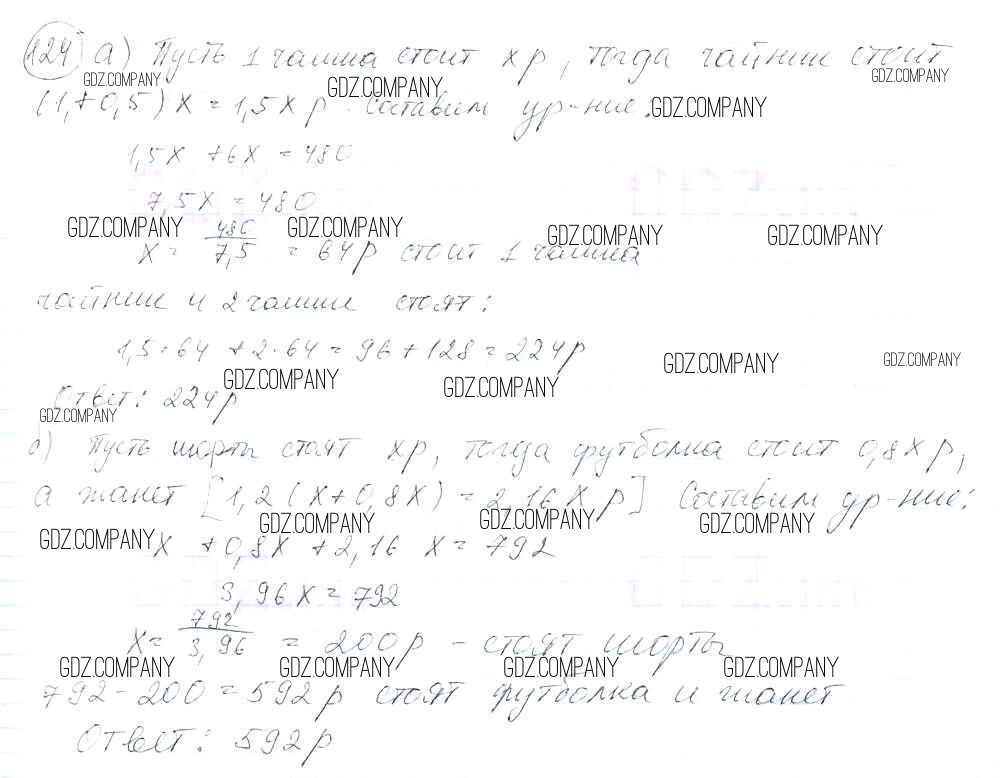 124 а) Пусть 1 чашка стоит x р, тогда чайник стоит
GDZ.COMPANY GDZ.COMPANY GDZ.COMPANY
(1,+0,5)x = 1,5x р. Составим ур-ние. GDZ.COMPANY
1,5x + 6x = 480
7,5x = 480
GDZ.COMPANY GDZ.COMPANY GDZ.COMPANY GDZ.COMPANY
x = 480/7,5 = 64р стоит 1 чашка
чайник и 2 чашки стоят:
1,5·64 + 2·64 = 96 + 128 = 224р
GDZ.COMPANY GDZ.COMPANY GDZ.COMPANY GDZ.COMPANY
Ответ: 224р
GDZ.COMPANY
б) Пусть шорты стоят xр, тогда футболка стоит 0,8x р,
а жакет [1,2(x+0,8x) = 2,16x р] Составим ур-ние:
GDZ.COMPANY GDZ.COMPANY GDZ.COMPANY GDZ.COMPANY
x + 0,8x + 2,16 x = 792
3,96x = 792
x = 792/3,96 = 200р - стоят шорты
GDZ.COMPANY GDZ.COMPANY GDZ.COMPANY GDZ.COMPANY
792 - 200 = 592 р стоят футболка и жакет
Ответ: 592р